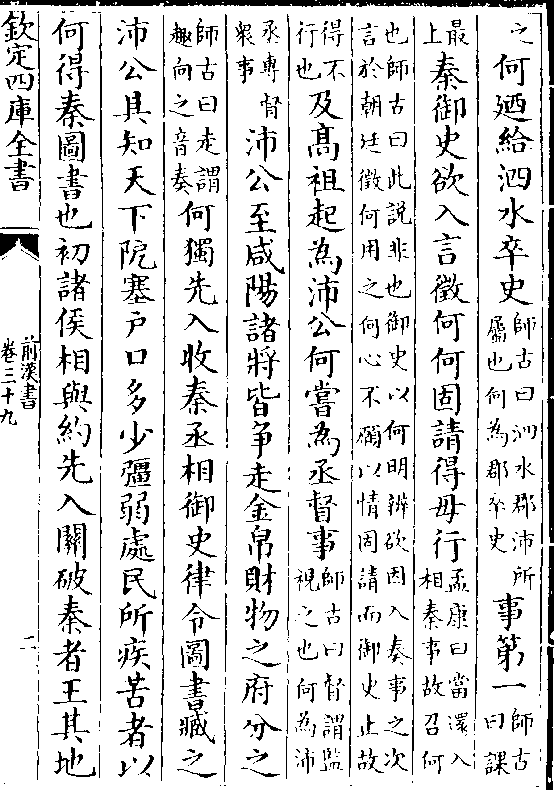 之何廼給泗水卒史師古曰泗水郡沛所屬也何為郡卒史事第一師古曰課
最上秦御史欲入言徵何何固請得毋行孟康曰當還入相秦事故召何
也師古曰此說非也御史以何明辨欲因入奏事之次
言於朝廷徵何用之何心不願以情固請而御史止故
得不行也及髙祖起為沛公何嘗為丞督事師古曰督謂監視之也何為沛
丞專督衆事沛公至咸陽諸將皆爭走金帛財物之府分之
師古曰走謂趣向之音奏何獨先入收秦丞相御史律令圖書臧之
沛公具知天下阨塞戸口多少彊弱處民所疾苦者以
何得秦圖書也初諸侯相與約先入關破秦者王其地
欽定四庫全書
前漢書
卷三十九
二